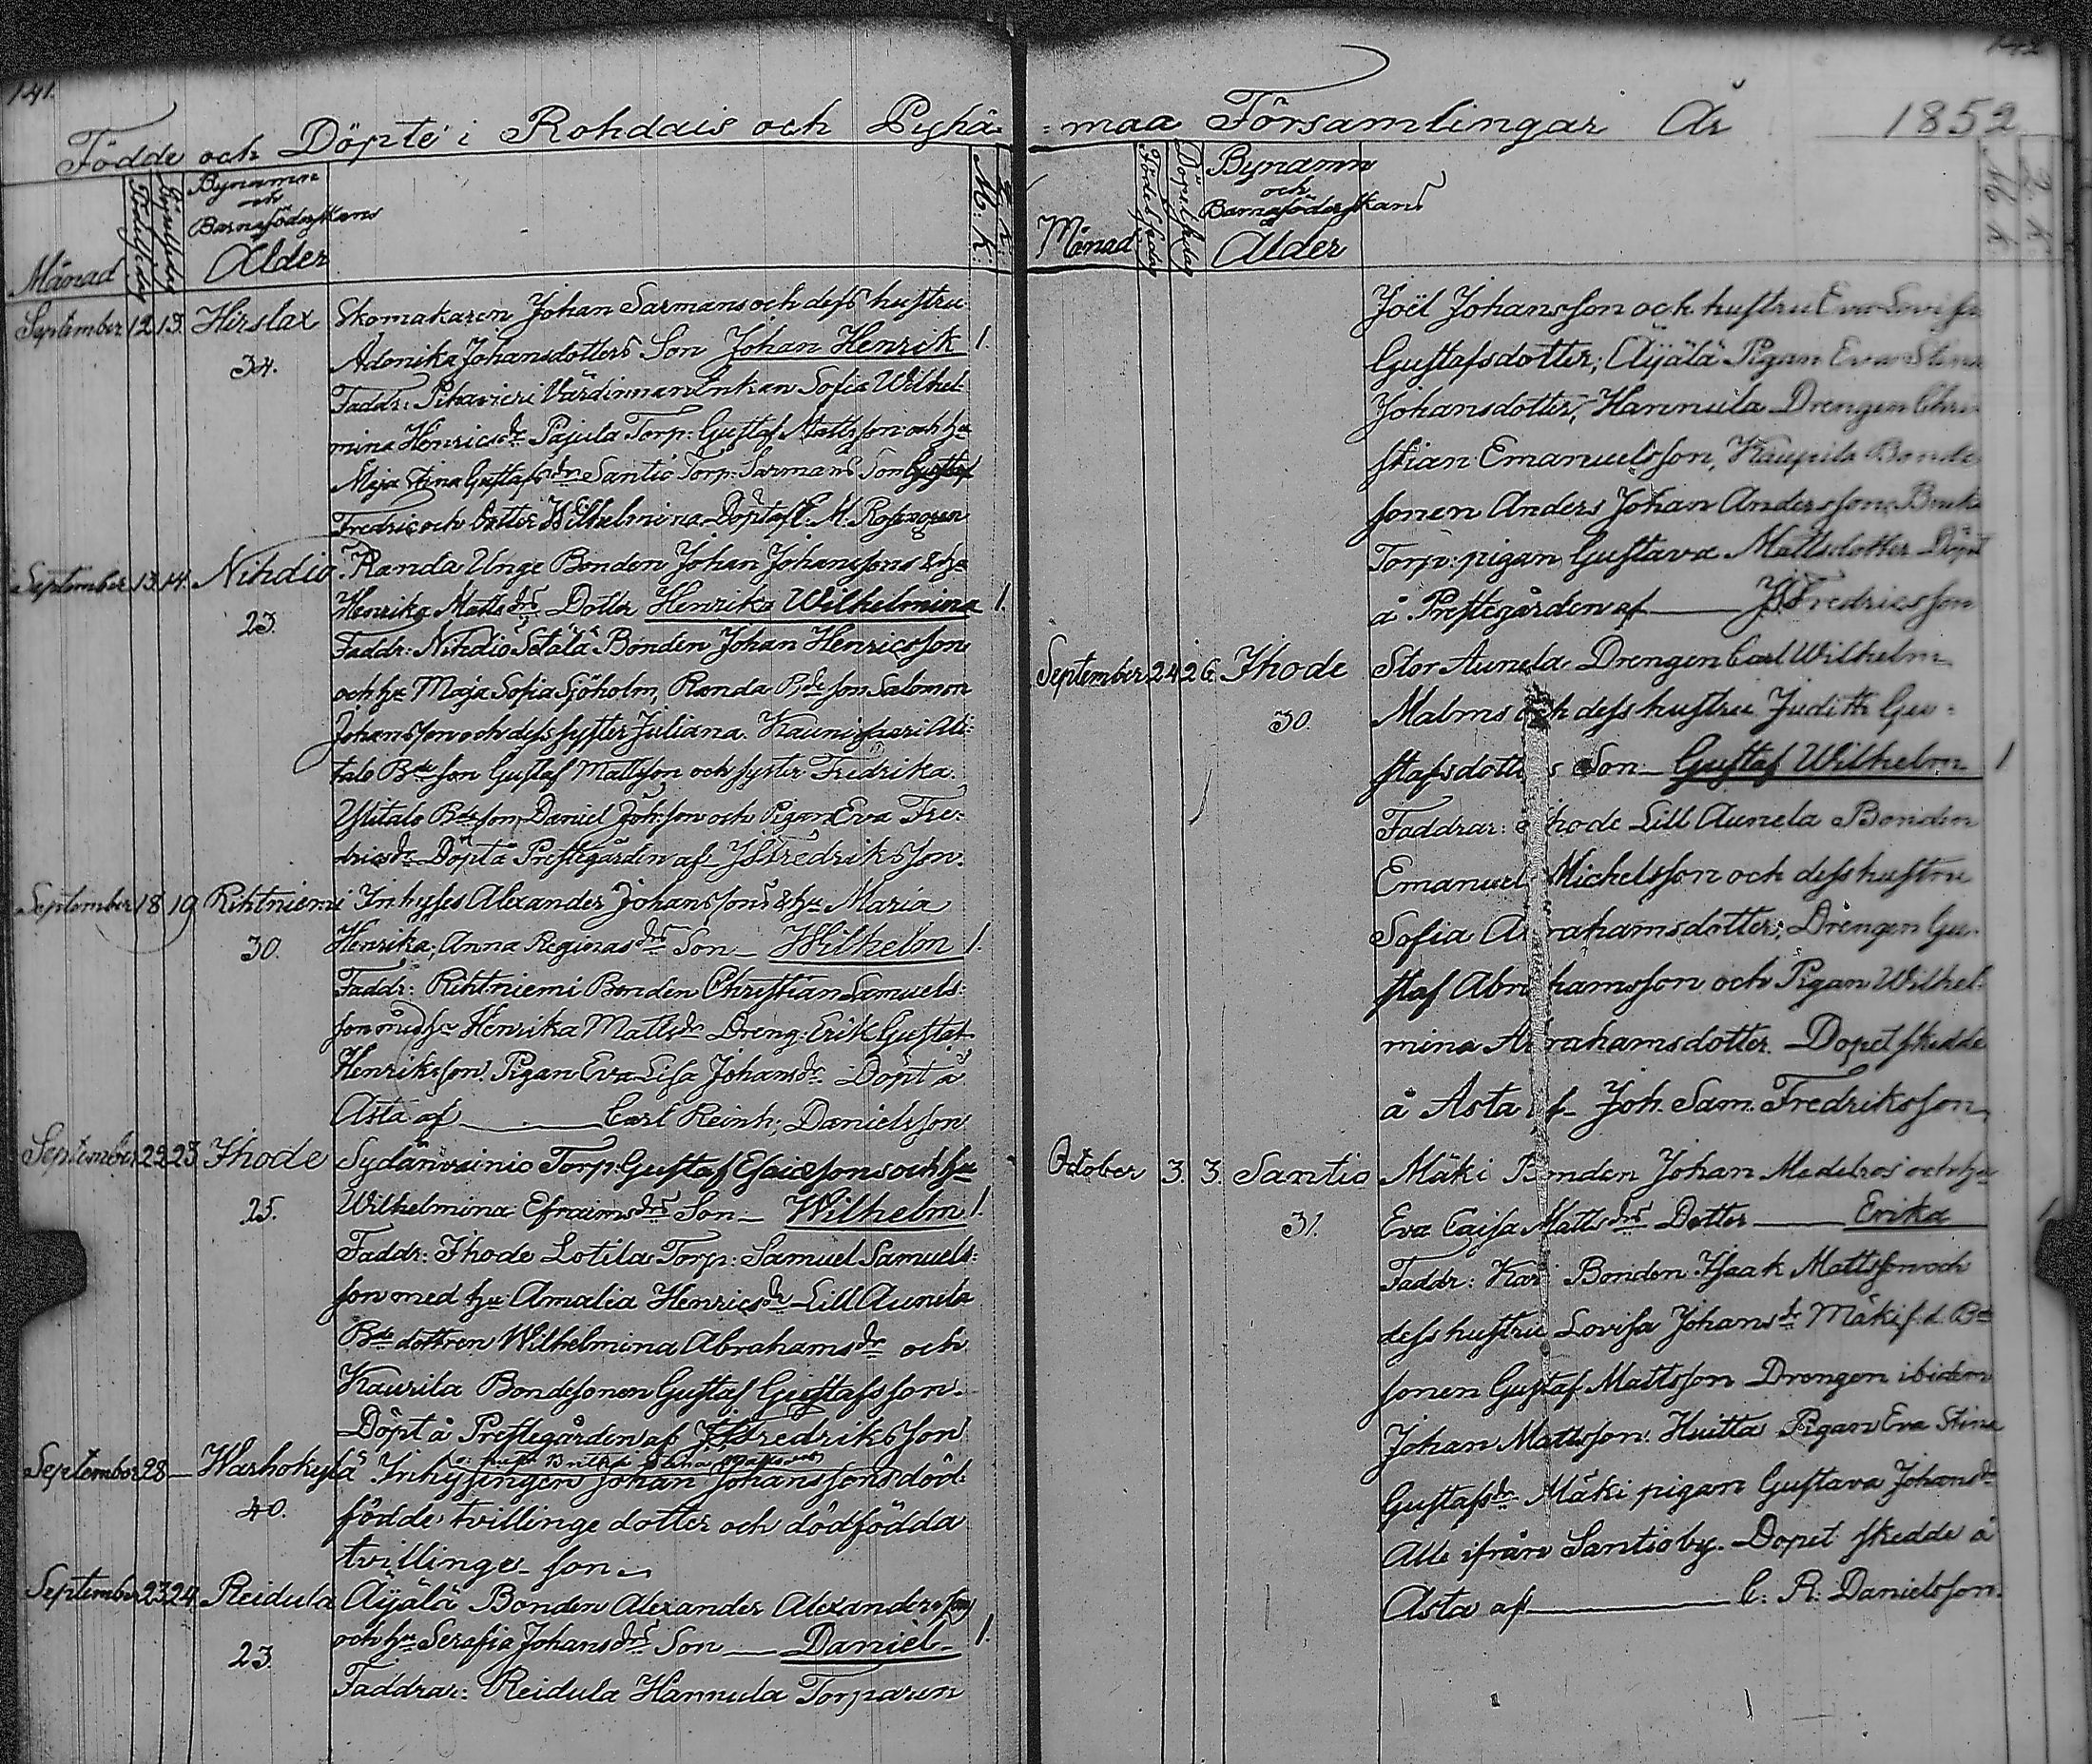 141.
142
Födde och Döpte i Rohdais och Pyhä-
=maa Församlingar År 1852
Månad
Födelsedag
Döpelsedag
Bynamn
och
Barnaföderskans
Ålder
M. k.
Q. k.
September 12 13. Hirslax Skomakaren Johan Sarmans och dess hustru
34. Adonika Johansdotters Son Johan Henrik 1.
Faddr: Pihavieri Värdinnan Enkan Sofia Wilhel-
mina Henricsdr Pajula Torp: Gustaf Mattsson och hu
Maja Stina Gustafsdr Santio Torp: Sarmans Son Gustaf
Fredric och Dotter Wilhelmina Döpt af C. M. Rosengren
September 13 14. Nihdiö. Randa Unge Bonden Johan Johanssons & hu
23. Henrika Mattsdrs Dotter Henrika Wilhelmina 1.
Faddr: Nihdiö Setälä Bonden Johan Henricsson
och hu Maja Sofia Sjöholm, Randa Bde son Salomon
Johansson och dess syster Juliana. Kaunissaari Ali-
talo Bde son Gustaf Mattsson och syster Fredrika.
Ylitalo Bde son Daniel Johsson och Pigan Eva Fre-
dricsdr Döpt å Prestegården af JSFredriksson.
September 18 19 Rihtniemi Inhyses Alexander Johanssons & hu Maria
30. Henrika, Anna Reginasdrs Son Wilhelm 1.
Faddr: Rihtniemi Bonden Christian Samuels-
son med hu Henrika Mattsdr Dreng. Erik Gustaf
Henriksson. Pigan Eva Lisa Johansdr. Döpt å
Asta af Carl Reinh: Danielsson
September 22 23 Ihode Sydänvainio Torp: Gustaf Esaiessons och hu
25. Wilhelmina Efraimsdrs Son Wilhelm 1.
Faddr: Ihode Lotila Torp: Samuel Samuels-
son med hu Amalia Henricsdr Lill Aunela
Bde dottren Wilhelmina Abrahamsdr och
Kaurila Bondesonen Gustaf Gustafsson.
Döpt å Prestegården af JSFredriksson
September 28 Warhokylä Inhysingen Johan Johanssons död-
40. födde tvillinge dotter och dödfödda
tvillinge son
September 23 24. Reidula Äyälä Bonden Alexander Alexanderssons
23. och hu Serafia Johansdrs Son Daniel 1.
Faddrar: Reidula Hannula Torparen
Månad
Födelsedag
Döpelsedag
Bynamn
och
Barnaföderskans
Ålder
M k
Q. k
Joël Johansson och hustru Eva Lovisa
Gustafsdotter; Äyälä Pigan Eva Stina
Johansdotter, Hannula Drengen Chri-
stian Emanuelsson, Kaupila Bonde
sonen Anders Johan Andersson,
Torp: pigan Gustava Mattsdotter Döpt
å Prestegården af JSFredricsson
September 24 26 Ihode Stor Aunela Drengen Carl Wilhelm
30. Malms och dess hustru Judith Gu-
stafsdotters Son Gustaf Wilhelm 1
Faddrar: Ihode Lill Aunela Bonden
Emanuel Michelsson och dess hustru
Sofia Abrahamsdotter; Drengen Gu-
staf Abrahamsson och Pigan Wilhel-
mina Abrahamsdotter. Dopet skedde
å Asta af Joh. Sam. Fredriksson
October 3. 3. Santio Mäki Bonden Johan Medelros och hu
31. Eva Caisa Mattsdrs Dotter Erika 1
Faddr: Kari Bonden Isaak Mattsson och
dess hustru Lovisa Johansdr Mäki f.d. Bde
sonen Gustaf Mattsson Drengen ibidem
Johan Mattsson. Huitta Pigan Eva Stina
Gustafsdr Mäki pigan Gustava Johansdr
Alle ifrån Santio by. Dopet skedde å
Asta af C. R. Danielsson.